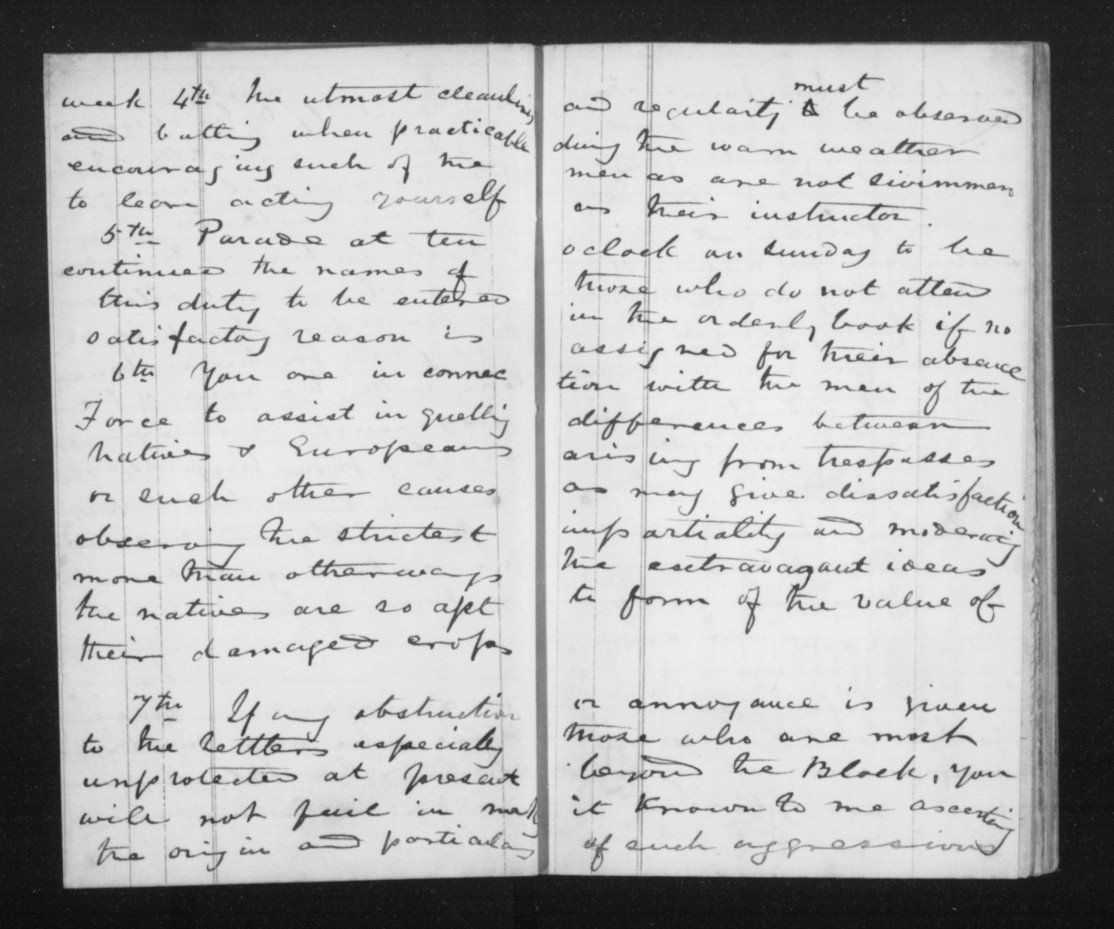 week 4th The utmost cleanliness and regularity must be observed
and bathing when practicable during the warm weather
encouraging such of the men as are not swimmers
to learn acting yourself as their instructor.
5th Parade at ten oclock on sunday to be
continued the names of those who do not attend
this duty to be entered in the orderly book if no
satisfactory reason is assigned for their absence
6th You are in connec tion with the men of the
Force to assist in quelling differences between
Natives & Europeans arising from trespasses
or such other causes as may give dissatisfaction
observing the strictest impartiality and moderating
more than otherways the extravagant ideas
the natives are so apt to form of the value of
their damaged crops
7th If any obstruction or annoyance is given
to the Settlers especially those who are most
unprotected at present beyond the Block, you
will not fail in making it known to me ascertaing
the origin and particulars of such aggressions